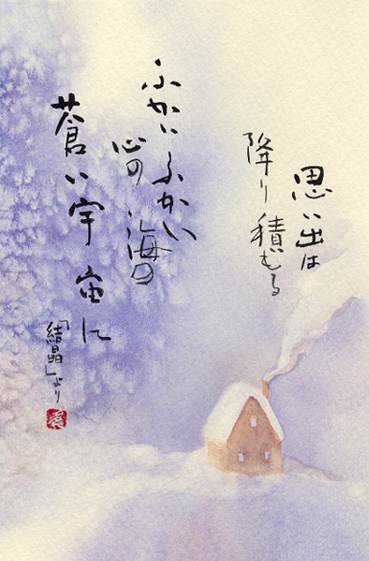 思い出は
降り積もる
ふかいふかい
心の海の
蒼い宇宙に
「結晶」より